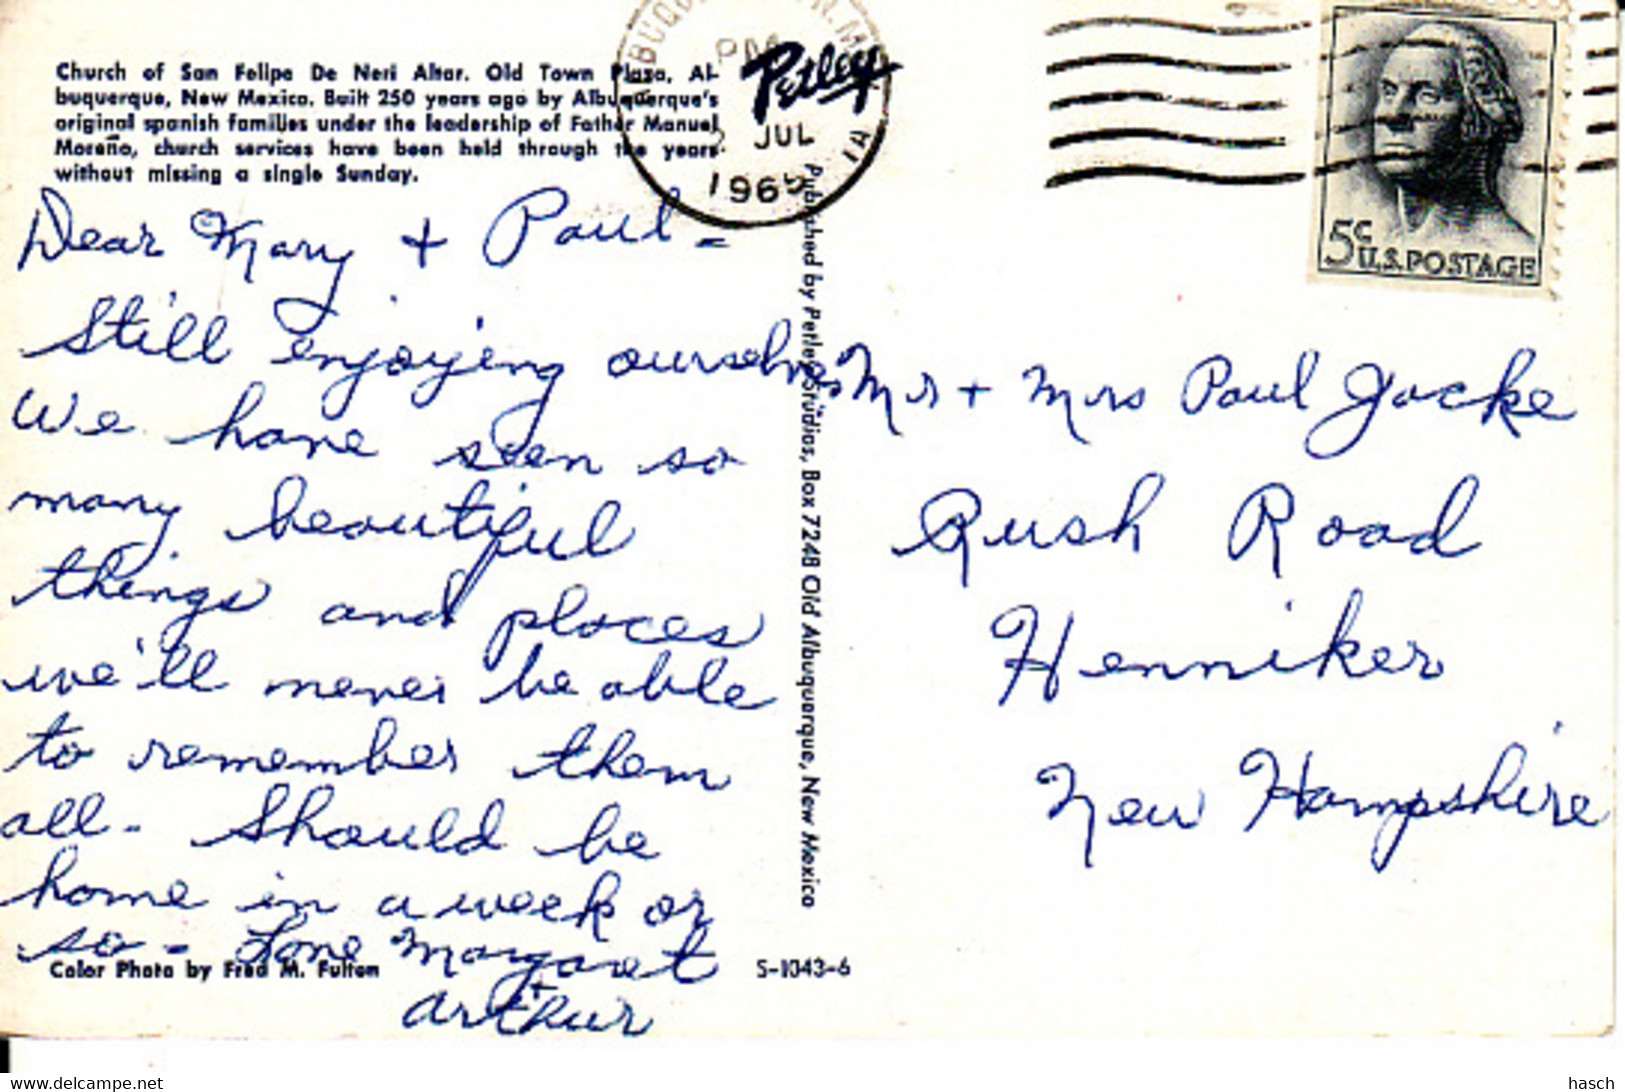 Church of San Felipe De Neri Altar. Old Town Plaza, Al-
buquerque, New Mexico. Built 250 years ago by Albuquerque's
original spanish families under the leadership of Father Manuel
Moreño, church services have been held through the years
without missing a single Sunday.
Petley
PM
JUL
1965
5c
U.S. POSTAGE
Dear Mary + Paul -
Still enjoying ourselves
We have seen so
many beautiful
things and places
we'll never be able
to remember them
all - Should be
home in a week or
so - Love Margaret
+
Arthur
Published by Petley Studios, Box 7248 Old Albuquerque, New Mexico
Mr + Mrs Paul Jocke
Rush Road
Henniker
New Hampshire
Color Photo by Fred M. Fulton
S-1043-6
www.delcampe.net
hasch